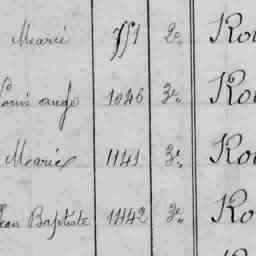 Marie 751 2e Rou
Louis ange 1046 3e Rou
Marie 1141 3e Rou
Jean Baptiste 1442 3e Rou